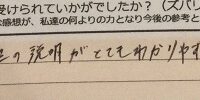 受けられていかがでしたか？（ズバリ
な感想が、私達の何よりの力となり今後の参考と
の説明がとてもわかりやす